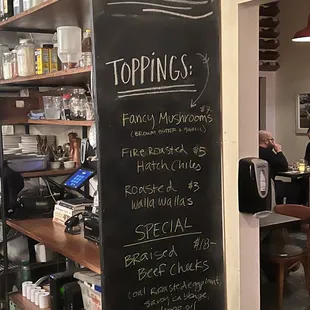 TOPPINGS:
Fancy Mushrooms $7
(Brown Butter & Garlic)
Fire Roasted $5
Hatch Chiles
Roasted $3
Walla Wallas
SPECIAL
Braised $18-
Beef Cheeks
(Coal Roasted eggplant,
Savoy Cabbage,